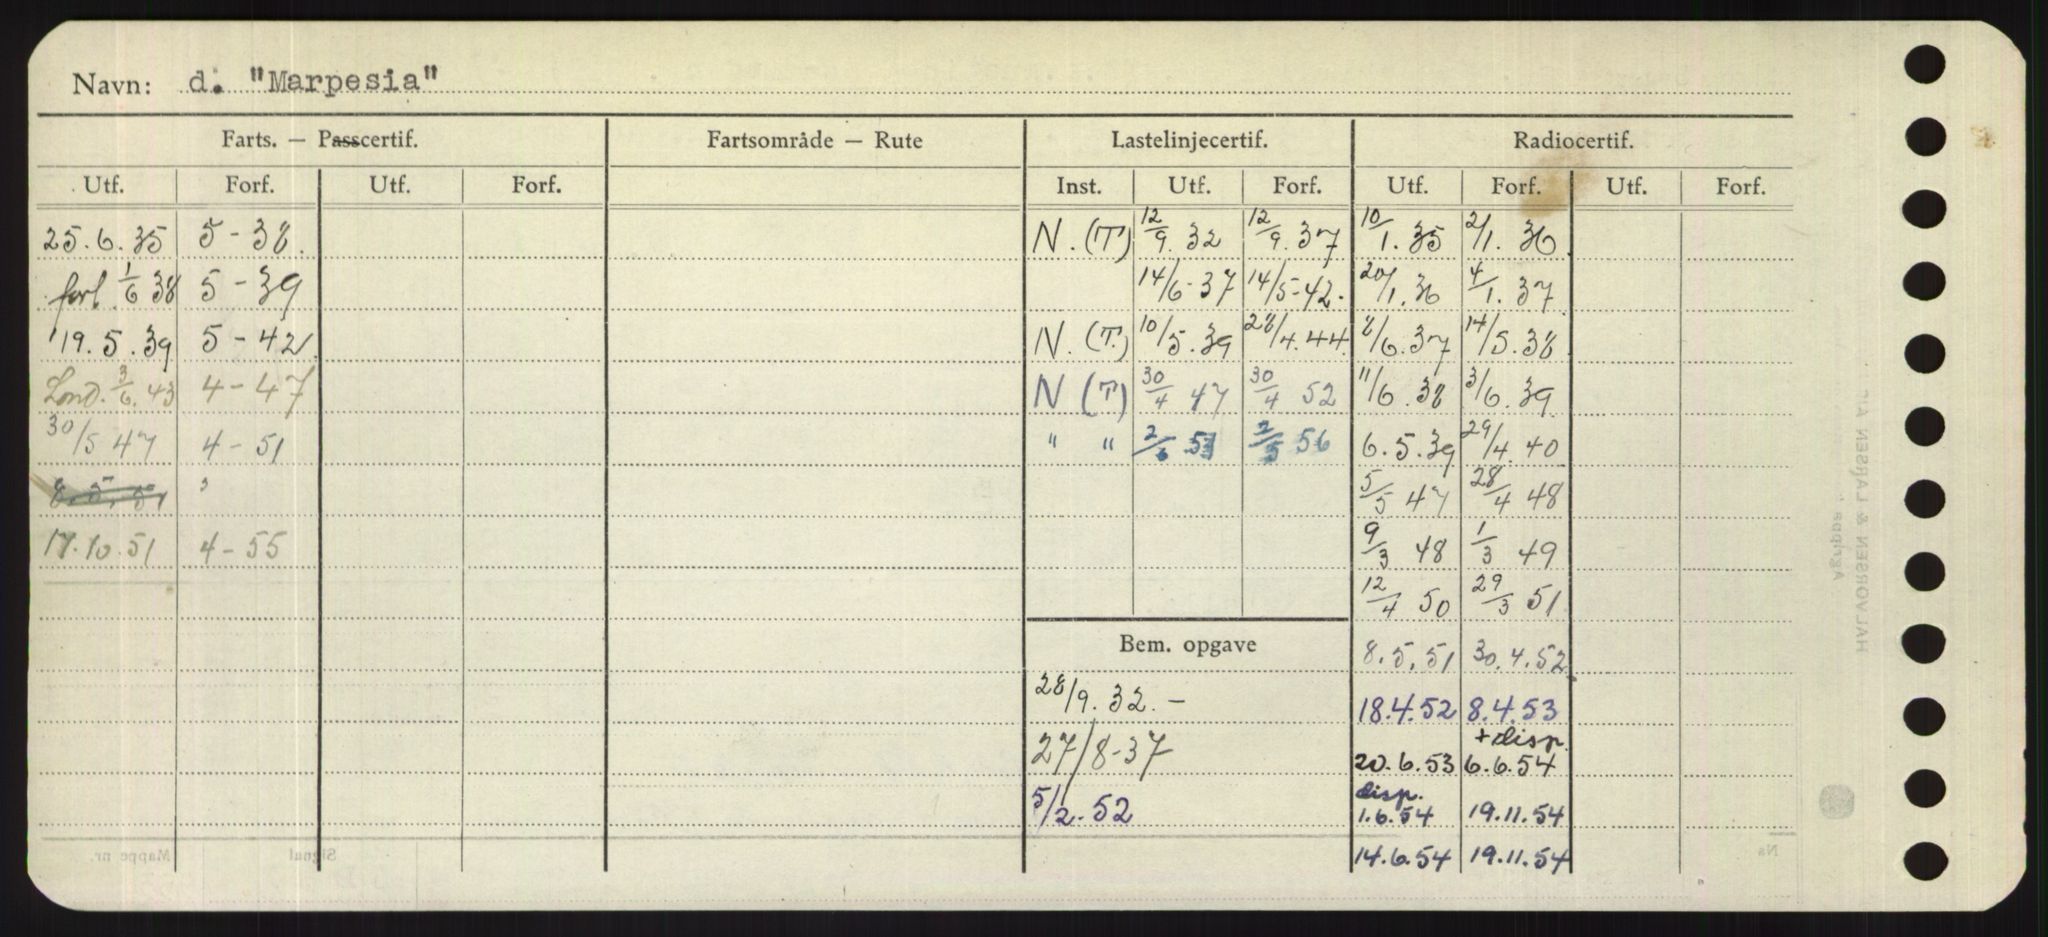 Navn: d. "Marpesia"
Farts. — Passcertif. Fartsområde — Rute Lastelinjecertif. Radiocertif.
Utf. Forf. Utf. Forf. Inst. Utf. Forf. Utf. Forf. Utf. Forf.
25.6.35 5-38. N.(T) 12/9.32 12/9.37 10/1.35 2/1.36
forl 1/6 38 5-39 14/6-37 14/5-42. 20/1.36 4/1.37
19.5.39 5-42 N.(T.) 10/5.39 28/4.44 8/6.37 14/5.38
Lond. 3/6.43 4-47 N (T) 30/4 47 30/4 52 11/6.38 3/6.39
30/5 47 4-51 " " 2/6 51 2/5 56 6.5.39 29/4.40
8.5.51 5/5 47 28/4 48
17.10.51 4-55 9/3 48 1/3 49
12/4 50 29/3 51
Bem. opgave 8.5.51 30.4.52
28/9.32.- 18.4.52 8.4.53
+disp.
27/8-37 20.6.53 6.6.54
disp.
5/2.52 1.6.54 19.11.54
14.6.54 19.11.54
Mappe nr. Signal
HALVORSEN & LARSEN A/S
"Agrippa"